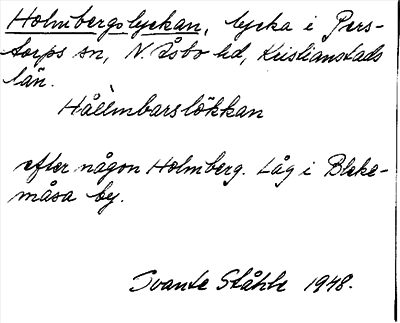 Holmbergslyckan, lycka i Pers-
torps sn, N. Åsbo hd, Kristianstads
län.
Hållmbarslökkan
efter någon Holmberg. Låg i Bleke-
måsa by.
Svante Ståhle 1948.